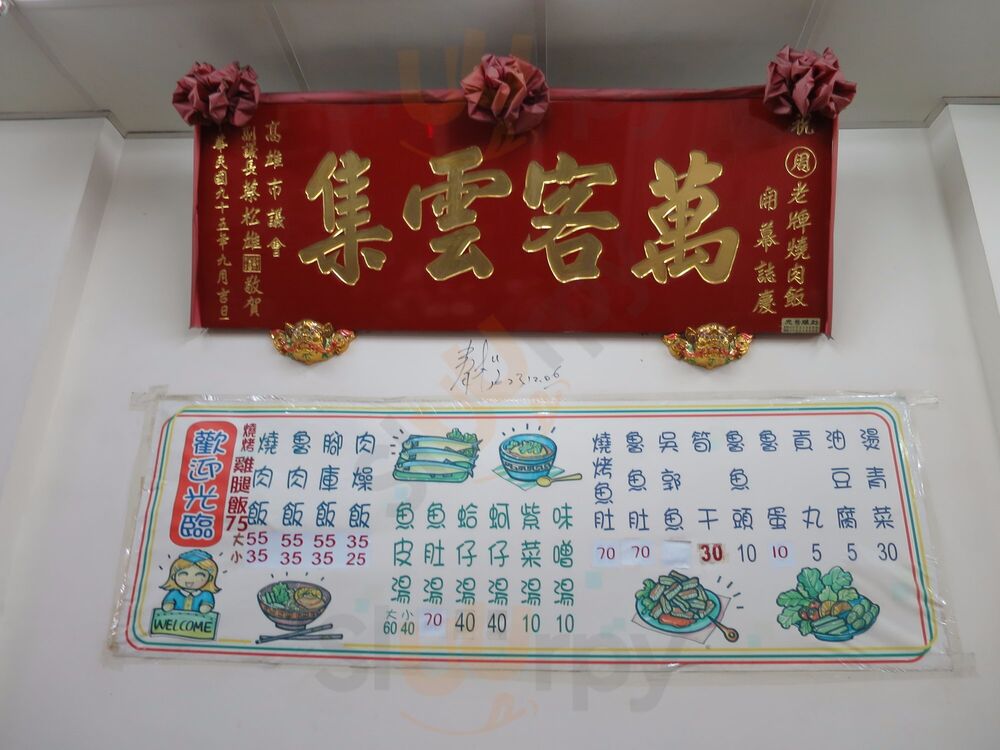 祝
周老牌燒肉飯
開幕誌慶
萬客雲集
高雄市議會
副議長蔡松雄敬賀
華民國九十五年九月吉日
2023.12.06
歡迎光臨
WELCOME
燒烤雞腿飯75
大
小
燒肉飯 55 35
魯肉飯 55 35
腳庫飯 55 35
肉燥飯 35 25
魚皮湯 大60 小40
魚肚湯 70
蛤仔湯 40
蚵仔湯 40
紫菜湯 10
味噌湯 10
燒烤魚肚 70
魯魚肚 70
吳郭魚
筍干 30
魯魚頭 10
魯蛋 10
貢丸 5
油豆腐 5
燙青菜 30
slurpy
slurpy
slurpy